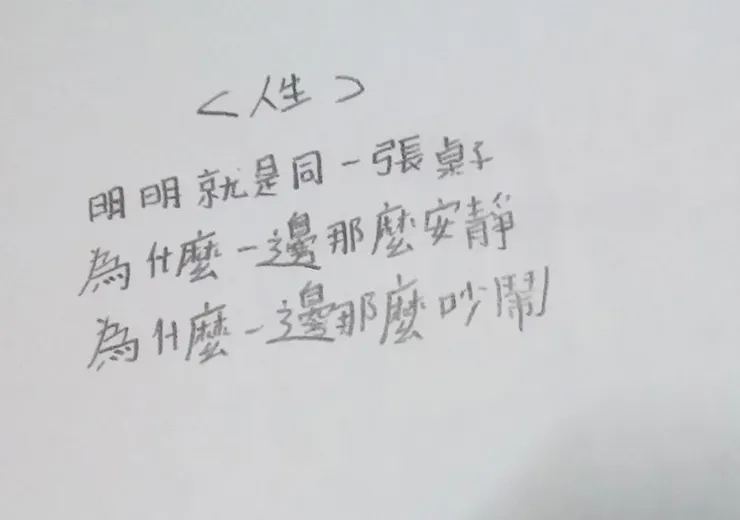 <人生>
明明就是同一張桌子
為什麼一邊那麼安靜
為什麼一邊那麼吵鬧